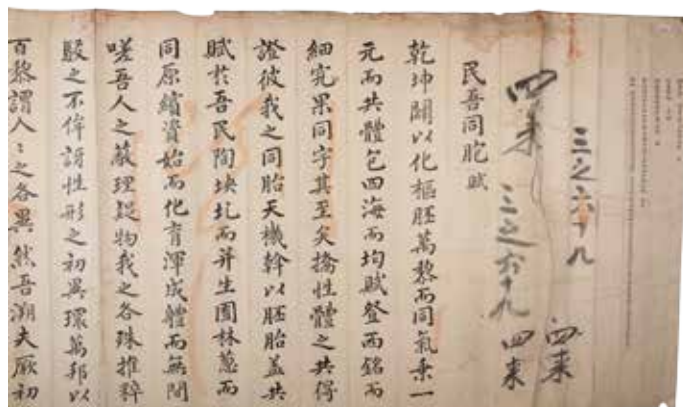 三之六十九
四來
四來 三之六十九
四來
民吾同胞賦
乾坤闢以化樞胚萬黎而同氣秉一
元而共體包四海而均賦登西銘而
細究果同字其至矣性體之共得
證彼我之同胎天機斡以胚胎盖共
賦於吾民陶坱圠而并生囿林蔥而
同原纘資始而化育渾成體而無間
嗟吾人之蔽理疑物我之各殊推粹
駁之不侔訝性形之初異環萬邦以
百黎謂人〻之各異然吾溯夫厥初